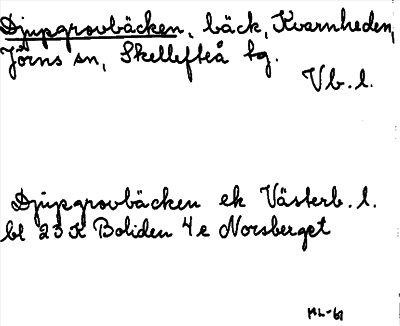 Djupgrovbäcken, bäck, Kvarnheden,
Jörns sn, Skellefteå tg.
Vb. l.
Djupgrovbäcken ek Västerb. l.
bl 23 K Boliden 4e Norsberget